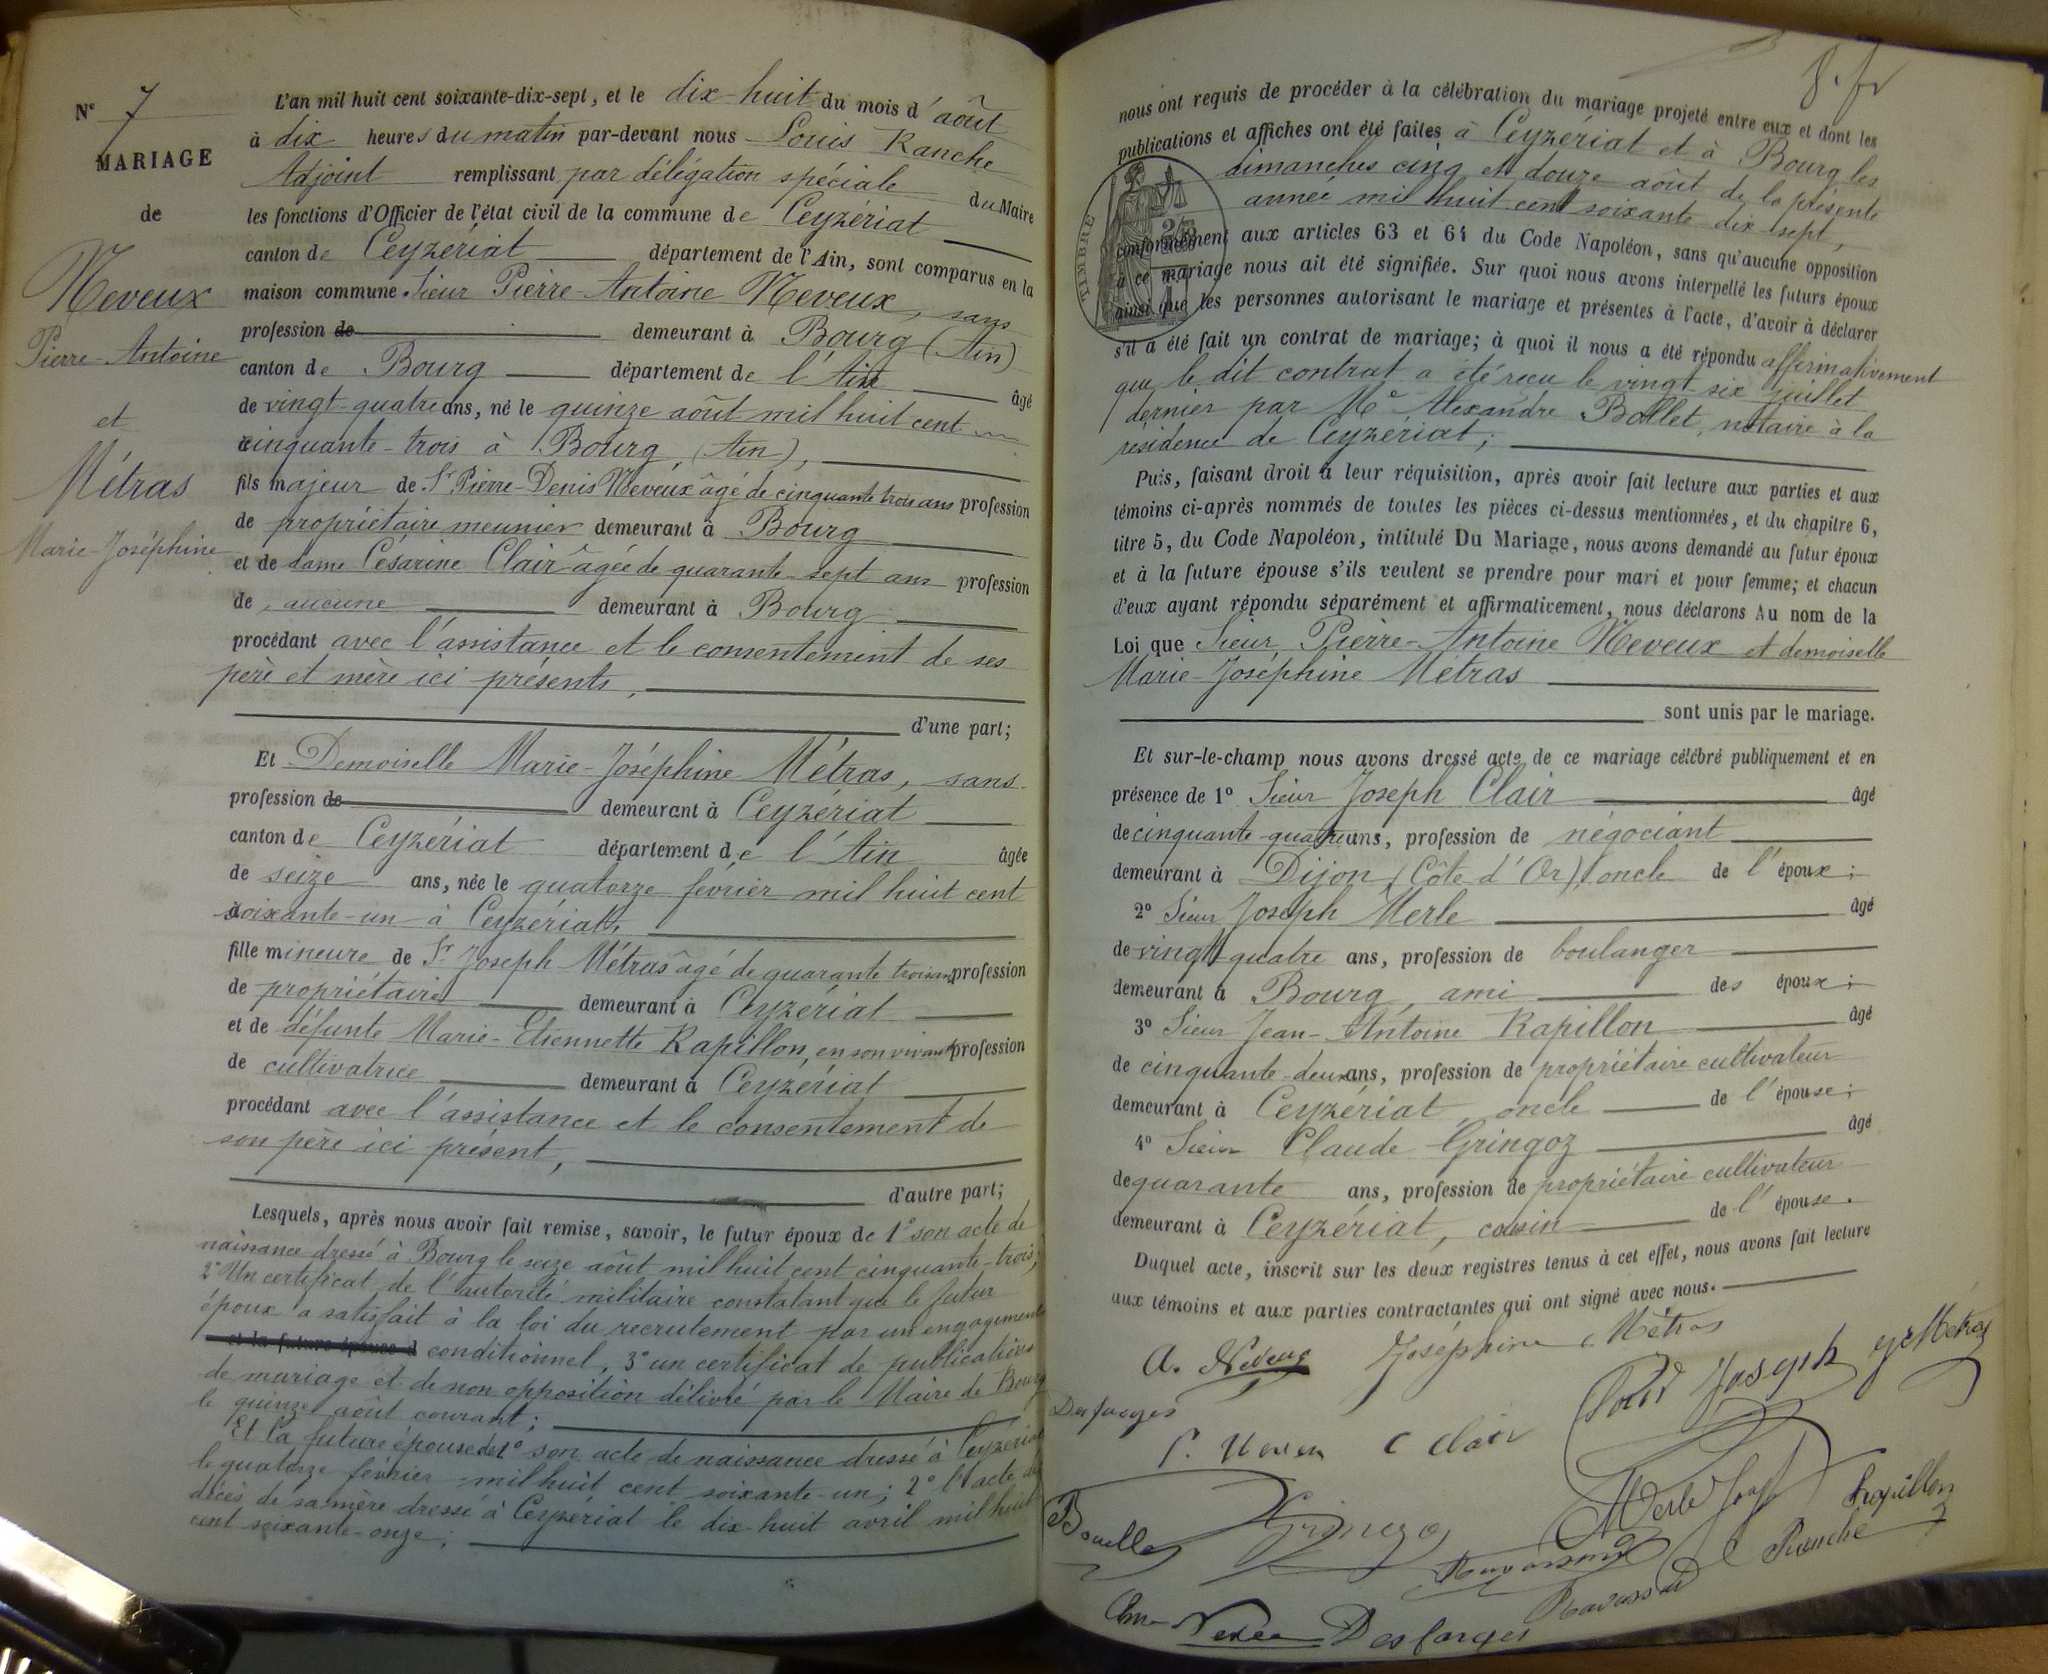 N° 7
MARIAGE
de
Neveux
Pierre-Antoine
et
Métras
Marie-Joséphine
L'an mil huit cent soixante-dix-sept, et le dix-huit du mois d'août
à dix heures du matin par-devant nous Louis Ranche
Adjoint remplissant par délégation spéciale du Maire
les fonctions d'Officier de l'état civil de la commune de Ceyzériat
canton de Ceyzériat département de l'Ain, sont comparus en la
maison commune Sieur Pierre-Antoine Neveux, sans
profession de demeurant à Bourg (Ain)
canton de Bourg département de l'Ain âgé
de vingt-quatre ans, né le quinze août mil huit cent
cinquante-trois à Bourg, (Ain),
fils majeur de Sr Pierre-Denis Neveux âgé de cinquante trois ans profession
de propriétaire meunier demeurant à Bourg
et de dame Césarine Clair âgée de quarante-sept ans profession
de aucune demeurant à Bourg
procédant avec l'assistance et le consentement de ses
père et mère ici présents,
d'une part;
Et Demoiselle Marie-Joséphine Métras, sans
profession de demeurant à Ceyzériat
canton de Ceyzériat département de l'Ain âgée
de seize ans, née le quatorze février mil huit cent
soixante-un à Ceyzériat,
fille mineure de Sr Joseph Métras âgé de quarante trois ans profession
de propriétaire demeurant à Ceyzériat
et de défunte Marie-Etiennette Rapillon, en son vivant profession
de cultivatrice demeurant à Ceyzériat
procédant avec l'assistance et le consentement de
son père ici présent,
d'autre part;
Lesquels, après nous avoir fait remise, savoir, le futur époux de 1° son acte de
naissance dressé à Bourg le seize août mil huit cent cinquante-trois;
2° Un certificat de l'autorité militaire constatant que le futur
époux a satisfait à la loi du recrutement par un engagement
et la future épouse d conditionnel, 3° un certificat de publications
de mariage et de non opposition délivré par le Maire de Bourg
le quinze août courant;
Et la future épouse de 1° son acte de naissance dressé à Ceyzériat
le quatorze février mil huit cent soixante-un; 2° l'acte de
décès de sa mère dressé à Ceyzériat le dix-huit avril mil huit
cent soixante-onze;
nous ont requis de procéder à la célébration du mariage projeté entre eux et dont les
publications et affiches ont été faites à Ceyzériat et à Bourg les
dimanches cinq et douze août de la présente
année mil huit cent soixante dix-sept,
TIMBRE
conformément aux articles 63 et 64 du Code Napoléon, sans qu'aucune opposition
à ce mariage nous ait été signifiée. Sur quoi nous avons interpellé les futurs époux
ainsi que les personnes autorisant le mariage et présentes à l'acte, d'avoir à déclarer
s'il a été fait un contrat de mariage; à quoi il nous a été répondu affirmativement
que le dit contrat a été reçu le vingt six juillet
dernier par Me Alexandre Bollet, notaire à la
résidence de Ceyzériat;
Puis, faisant droit à leur réquisition, après avoir fait lecture aux parties et aux
témoins ci-après nommés de toutes les pièces ci-dessus mentionnées, et du chapitre 6,
titre 5, du Code Napoléon, intitulé Du Mariage, nous avons demandé au futur époux
et à la future épouse s'ils veulent se prendre pour mari et pour femme; et chacun
d'eux ayant répondu séparément et affirmativement, nous déclarons Au nom de la
Loi que Sieur Pierre-Antoine Neveux et demoiselle
Marie-Joséphine Métras
sont unis par le mariage.
Et sur-le-champ nous avons dressé acte de ce mariage célébré publiquement et en
présence de 1° Sieur Joseph Clair âgé
de cinquante-quatre ans, profession de négociant
demeurant à Dijon, (Côte d'Or) oncle de l'époux;
2° Sieur Joseph Merle âgé
de vingt quatre ans, profession de boulanger
demeurant à Bourg, ami des époux;
3° Sieur Jean-Antoine Rapillon âgé
de cinquante-deux ans, profession de propriétaire cultivateur
demeurant à Ceyzériat, oncle de l'épouse;
4° Sieur Claude Gringoz âgé
de quarante ans, profession de propriétaire cultivateur
demeurant à Ceyzériat, cousin de l'épouse.
Duquel acte, inscrit sur les deux registres tenus à cet effet, nous avons fait lecture
aux témoins et aux parties contractantes qui ont signé avec nous.
A. Neveux Joséphine Métras
Joseph Métras
Desfarges
C Clair
Merle Rapillon
Gringoz
Ranche
Desfarges